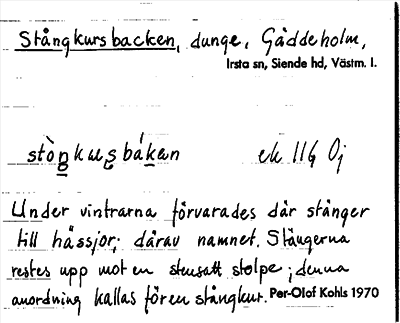 Stångkursbacken, dunge, Gäddeholm,
Irsta sn, Siende hd, Västm. l.
stòngkusbákan ek 11G Oj
Under vintrarna förvarades där stänger
till hässjor; därav namnet. Stängerna
restes upp mot en stensatt stolpe; denna
anordning kallas för en stångkur. Per-Olof Kohls 1970